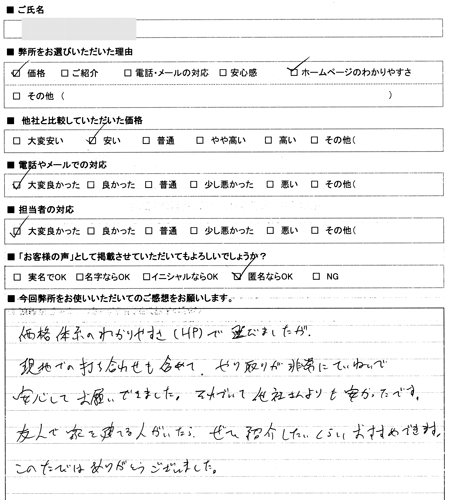 ■ ご氏名
■ 弊所をお選びいただいた理由
☑ 価格 □ ご紹介 □ 電話・メールの対応 □ 安心感 ☑ ホームページのわかりやすさ
□ その他（ ）
■ 他社と比較していただいた価格
□ 大変安い ☑ 安い □ 普通 □ やや高い □ 高い □ その他（
■ 電話やメールでの対応
☑ 大変良かった □ 良かった □ 普通 □ 少し悪かった □ 悪い □ その他（
■ 担当者の対応
☑ 大変良かった □ 良かった □ 普通 □ 少し悪かった □ 悪い □ その他（
■ 「お客様の声」として掲載させていただいてもよろしいでしょうか？
□ 実名でOK □ 名字ならOK □ イニシャルならOK ☑ 匿名ならOK □ NG
■ 今回弊所をお使いいただいてのご感想をお願いします。
価格体系のわかりやすさ（HP）で選びましたが、
現地での打ち合わせも含めて、やり取りが非常にていねいで
安心してお願いできました。それでいて他社さんよりも安かったです。
友人で家を建てる人がいたら、ぜひ紹介したいくらいおすすめできます。
このたびはありがとうございました。